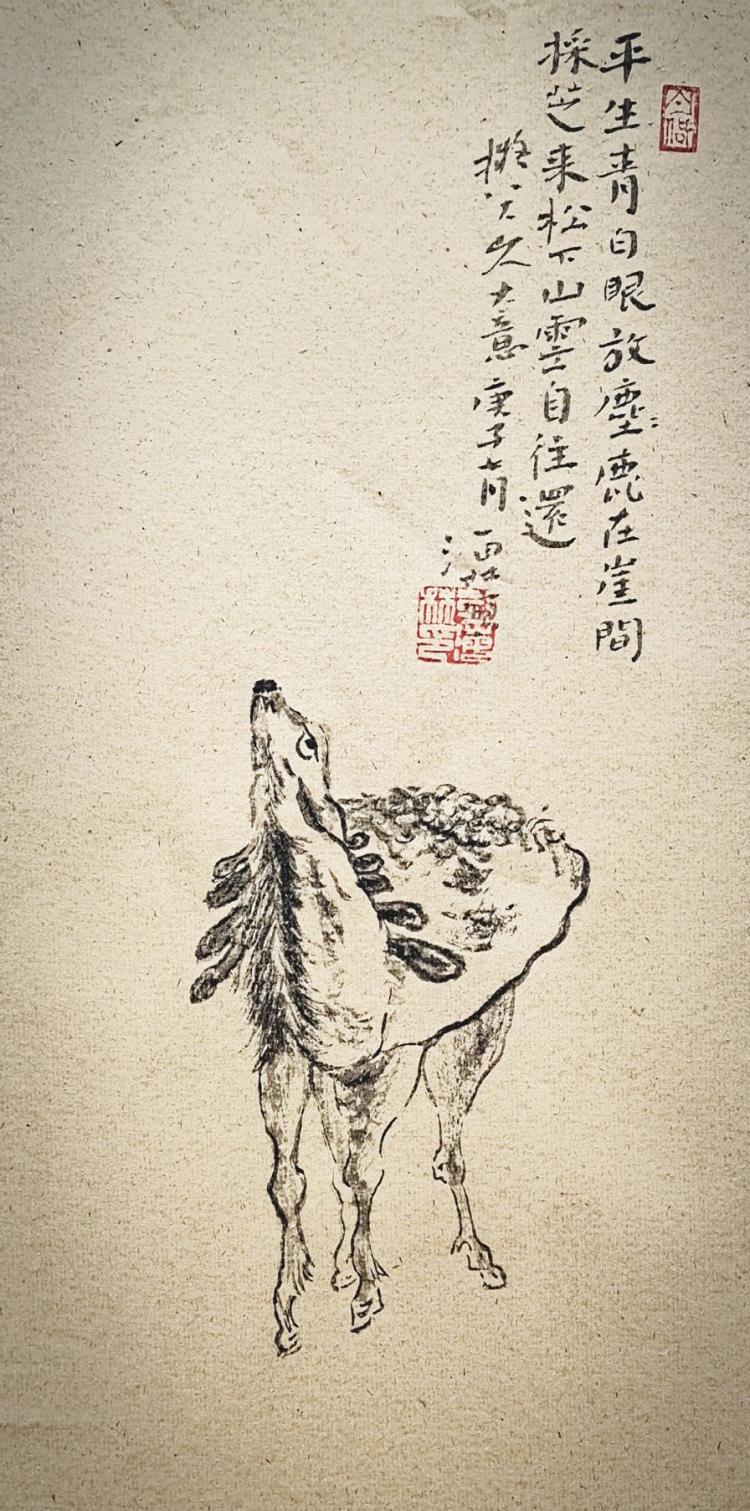 平生青白眼放塵〻鹿在崖間
採芝来松下山雲自往還
擬八大大意庚子七月